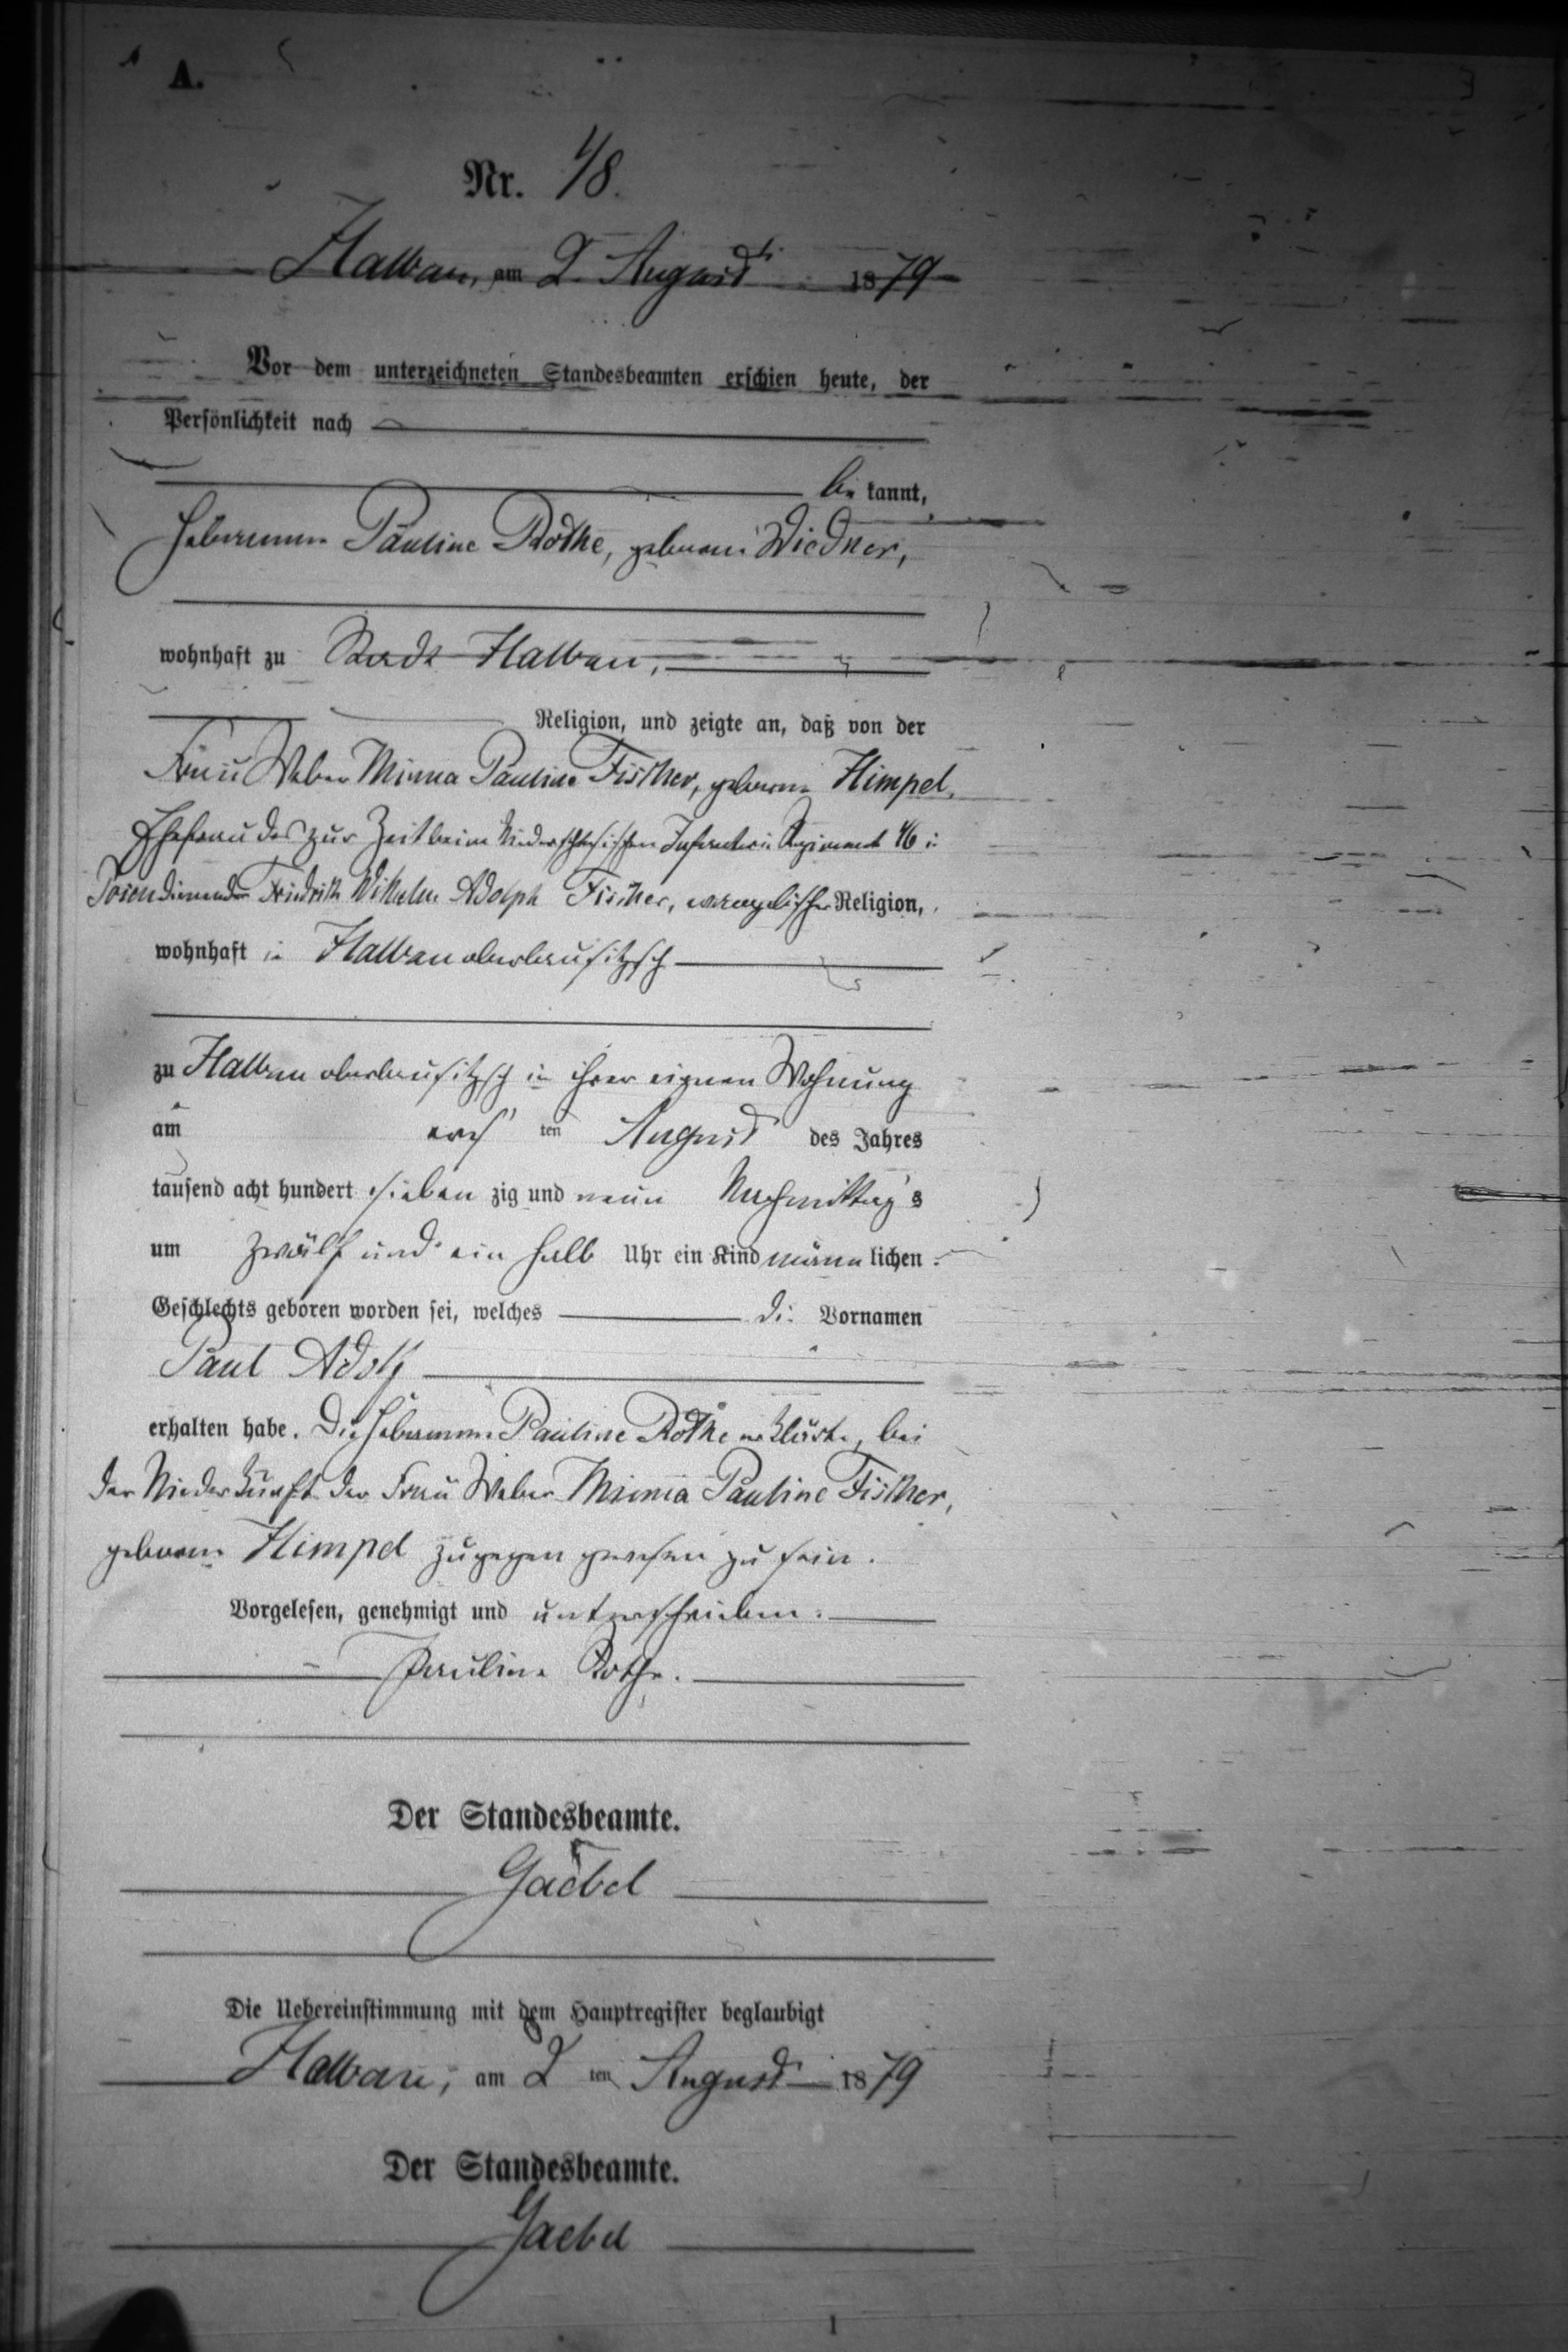 A.
Nr. 48.
Halbau, am 2. August 1879
Vor dem unterzeichneten Standesbeamten erschien heute, der
Persönlichkeit nach
be kannt,
Hebamme Pauline Rothe, geborene Wiedner,
wohnhaft zu Stadt Halbau,
Religion, und zeigte an, daß von der
Frau Weber Minna Pauline Fischer, geborne Himpel,
Ehefrau des zur Zeit beim Niederschlesischen Infanterie Regiment 46 in
Posen dienenden Friedrich Wilhelm Adolph Fischer, evangelischer Religion,
wohnhaft in Halbau oberlausitzsch
zu Halbau oberlausitzsch in ihrer eignen Wohnung
am ersten August des Jahres
tausend acht hundert sieben zig und neun Nachmittags
um zwölf und ein halb Uhr ein Kind männlichen
Geschlechts geboren worden sei, welches die Vornamen
Paul Adolf
erhalten habe. Die Hebamme Pauline Rothe erklärte, bei
der Niederkunft der Frau Weber Minna Pauline Fischer,
geborne Himpel zugegen gewesen zu sein.
Vorgelesen, genehmigt und unterschrieben.
Pauline Rothe.
Der Standesbeamte.
Gaebel
Die Uebereinstimmung mit dem Hauptregister beglaubigt
Halbau, am 2 ten August 1879
Der Standesbeamte.
Gaebel
1